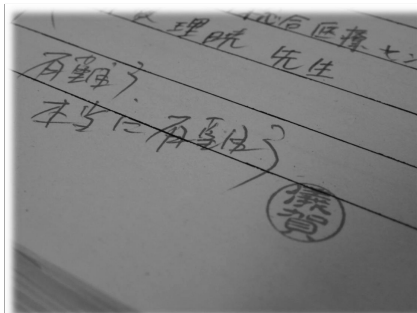 総合医療セン
理暁 先生
有難う
本当に有難う
儀賀